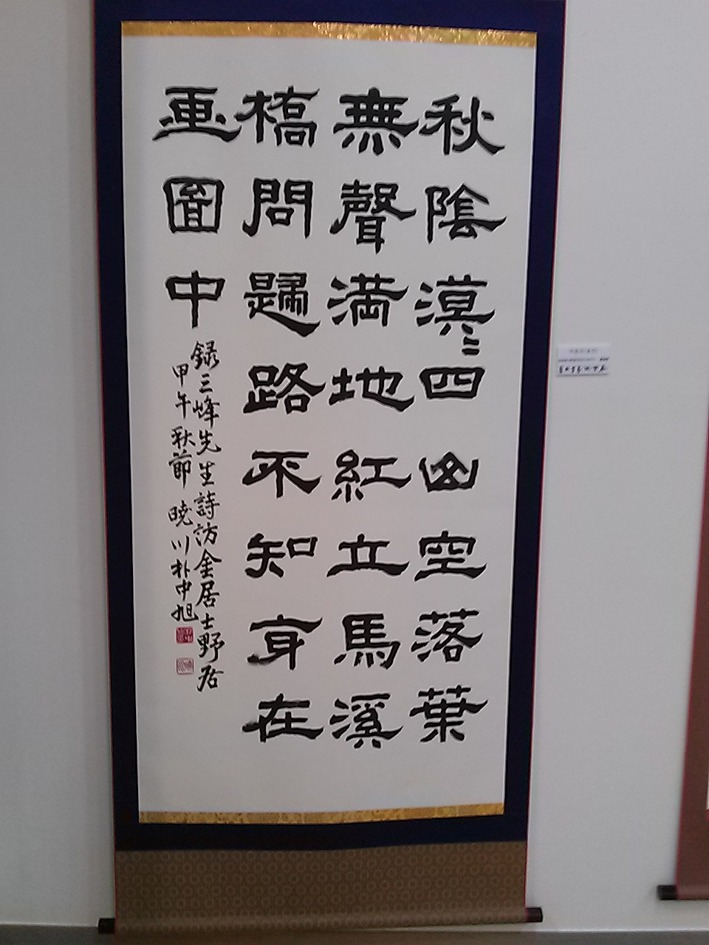 秋陰漠〻四山空落葉
無聲満地紅立馬溪
橋問歸路不知身在
畫圖中
録三峰先生詩訪金居士野居
甲午秋節 曉川朴中旭